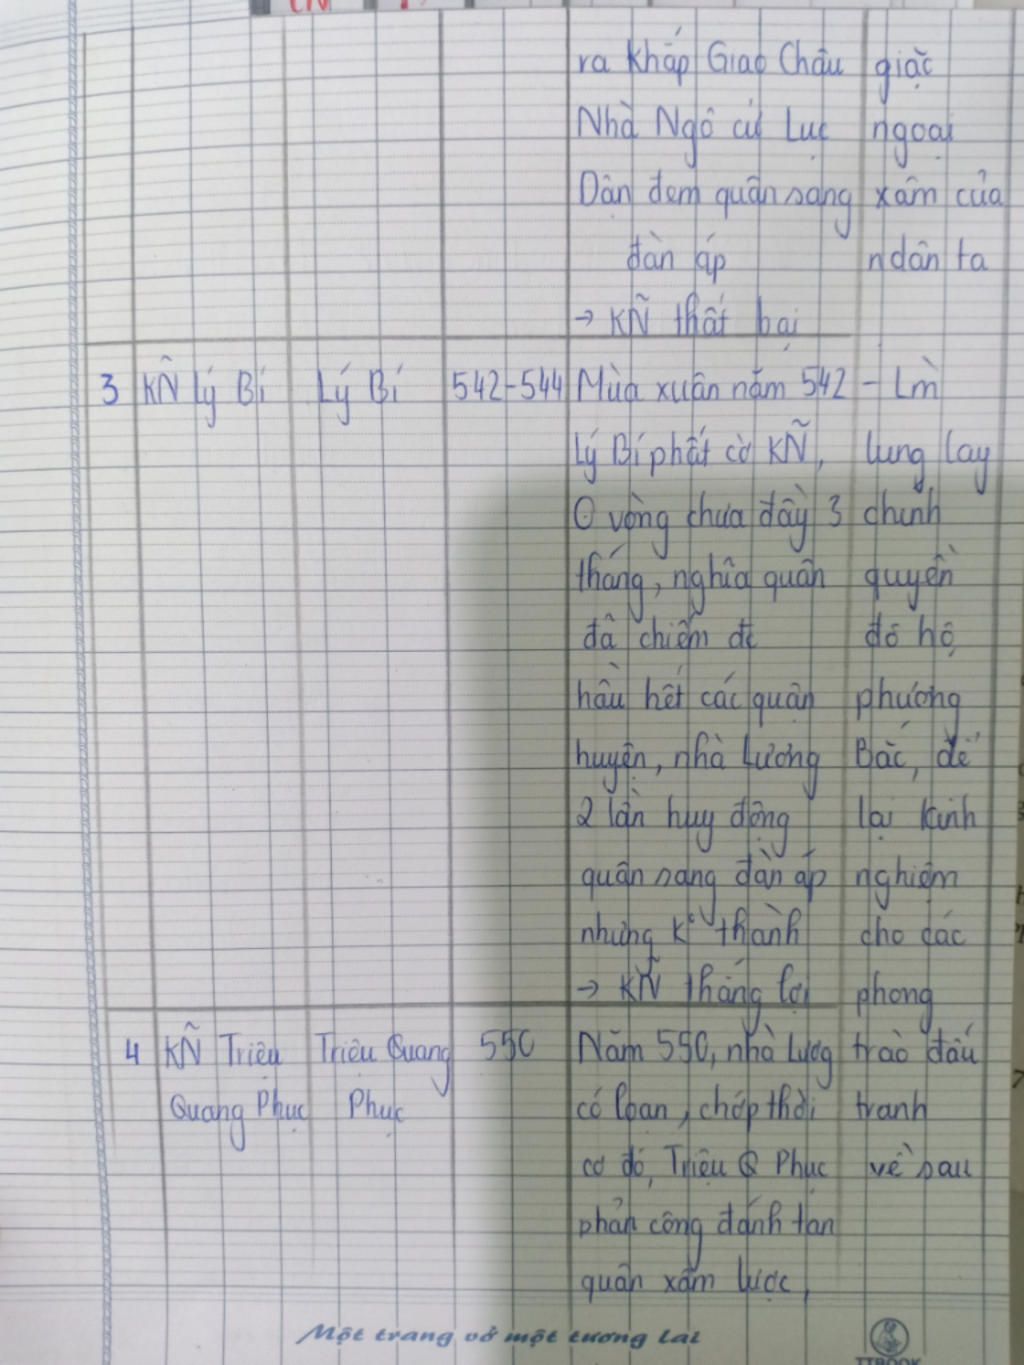 ra khắp Giao Châu giặc
Nhà Ngô cử Lục ngoại
Dận đem quân sang xâm của
đàn áp ndân ta
→ KÑ thất bại
3 KÑ Lý Bí Lý Bí 542-544 Mùa xuân năm 542 - Lm̀
Lý Bí phất cờ KÑ, lung lay
vòng chưa đầy 3 chính
tháng, nghĩa quân quyền
đã chiếm đc đô hộ
hầu hết các quận phương
huyện, nhà Lương Bắc, để
2 lần huy động lại kinh
quân sang đàn áp nghiệm
nhưng K thành cho các
→ KÑ thắng lợi phong
4 KÑ Triệu Triệu Quang 550 Năm 550, nhà Lương trào đấu
Quang Phục Phục có loạn, chớp thời tranh
cơ đó, Triệu Q Phục về sau
phản công đánh tan
quân xâm lược,
Một trang vở một tương lai
TTBOOK